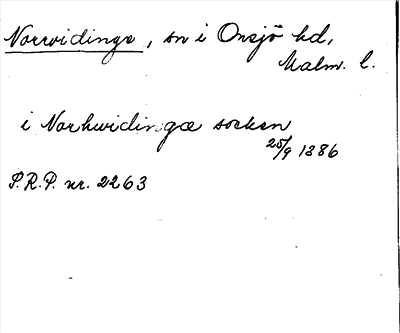 Norrvidinge, sn i Onsjö hd,
Malm. l.
i Norhwidingæ socken
25/9 1386
S.R.P. nr. 2263